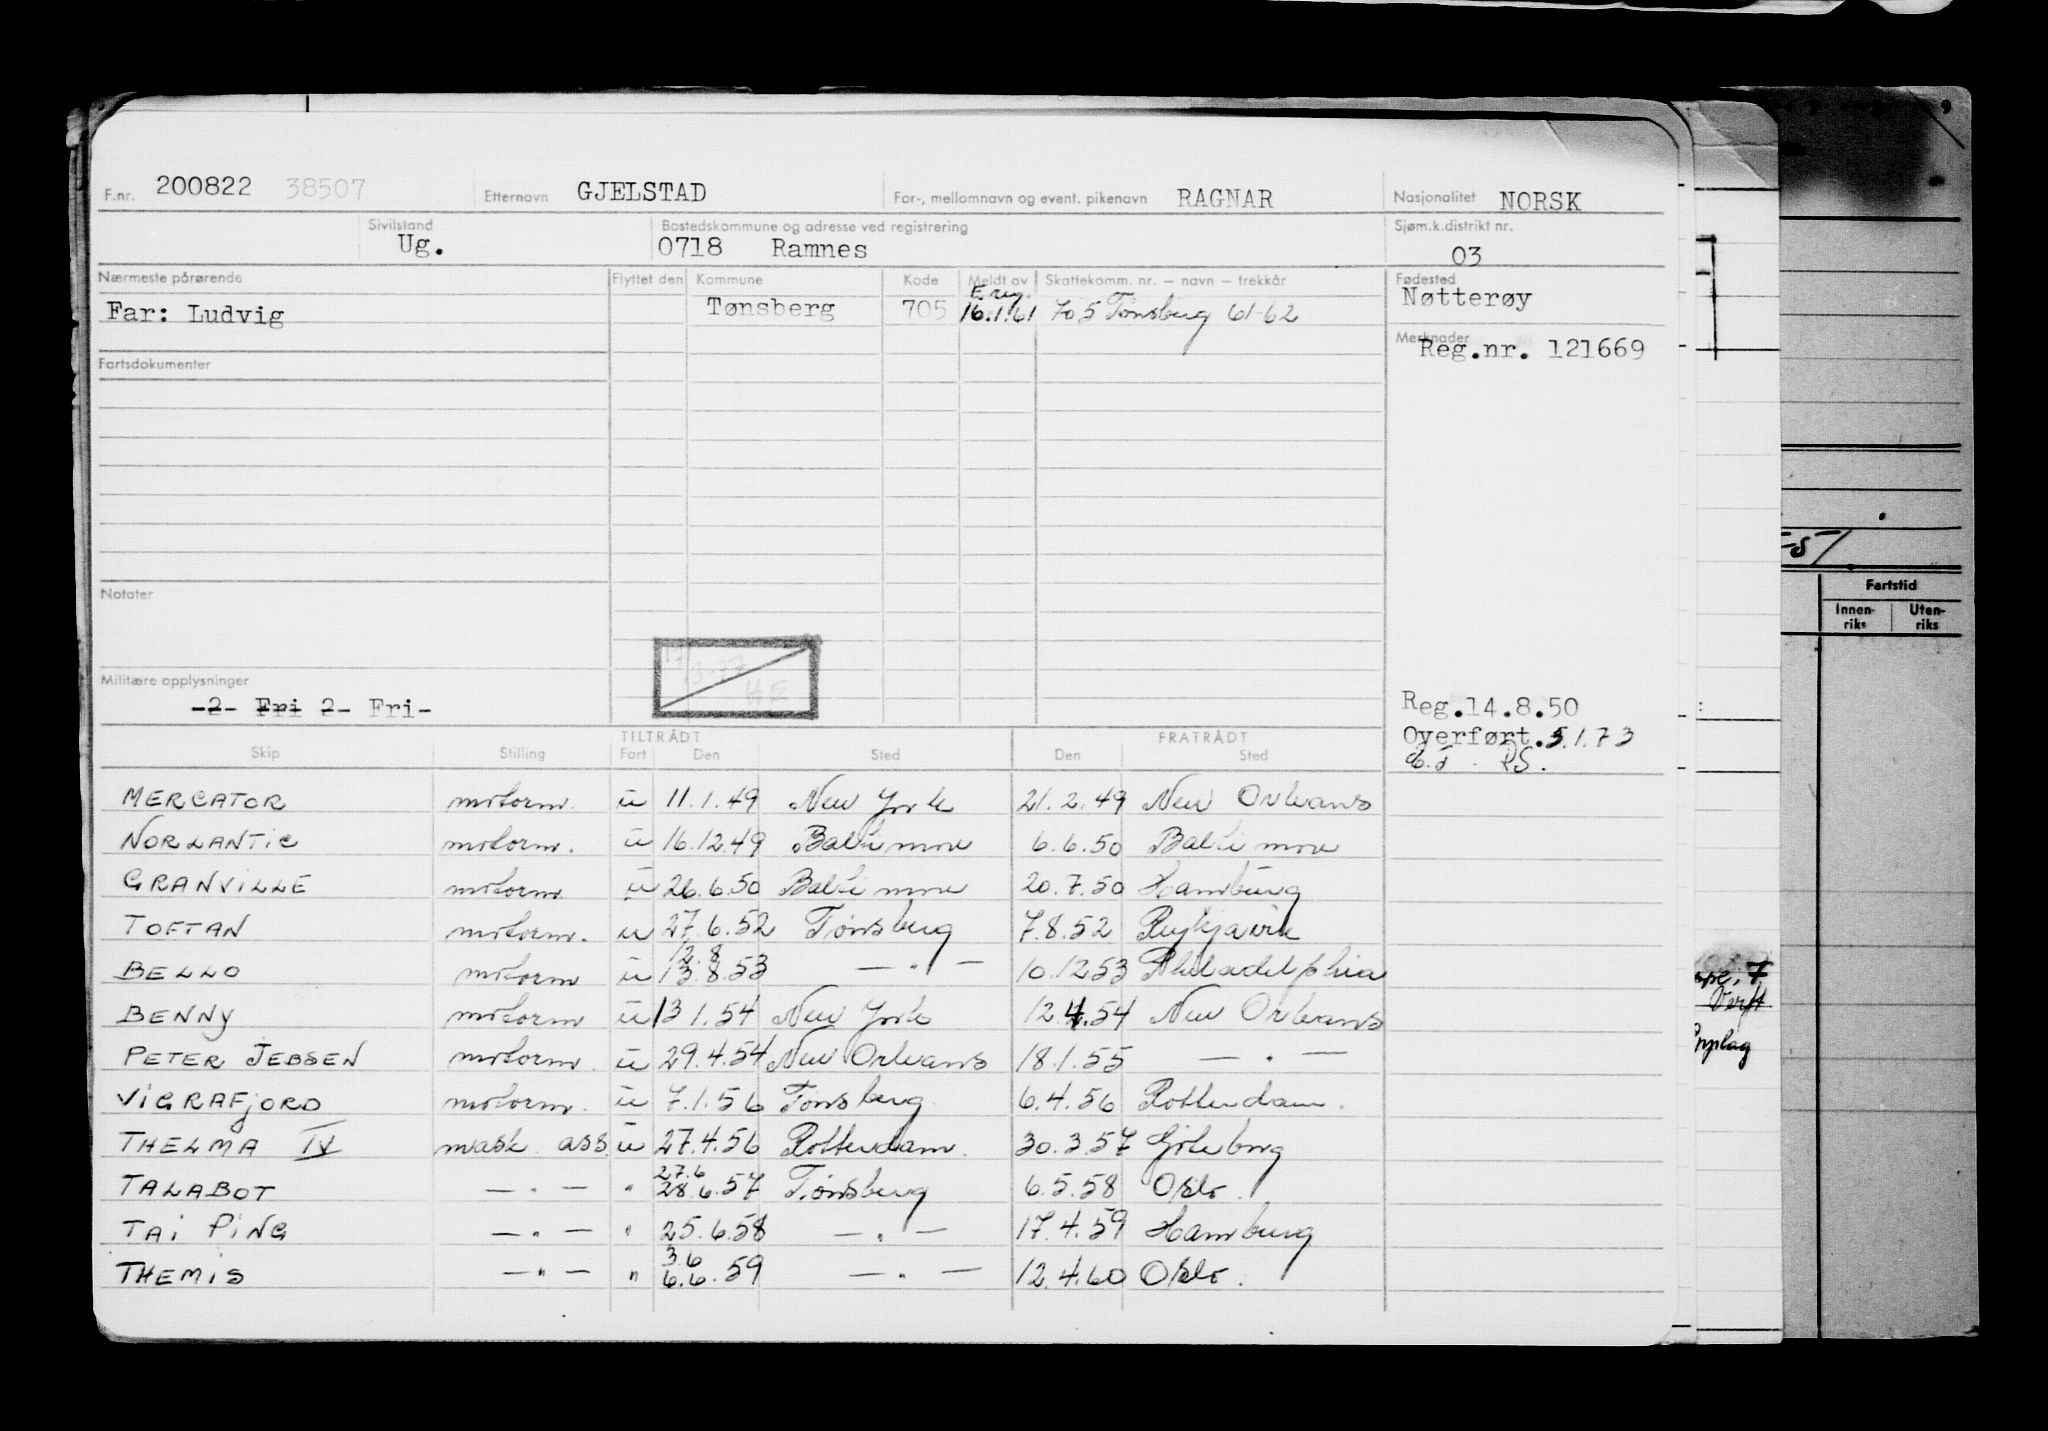 F.nr. 200822 38507 Etternavn GJELSTAD For-, mellomnavn og event. pikenavn RAGNAR Nasjonalitet NORSK
Sivilstand Ug. Bostedskommune og adresse ved registrering 0718 Ramnes Sjøm.k.distrikt nr. 03
Nærmeste pårørende Flyttet den Kommune Kode Meldt av Skattekomm. nr. — navn — trekkår Fødested
Far: Ludvig Tønsberg 705 16.1.61 705 Tønsberg 61-62 Nøtterøy
Merknader
Reg.nr. 121669
Fartsdokumenter
Notater
Militære opplysninger
-2- Fri 2- Fri-
Reg.14.8.50
Overført.5.1.73
TILTRÅDT FRATRÅDT
Skip Stilling Fart Den Sted Den Sted
MERCATOR motorm. u 11.1.49 New York 21.2.49 New Orleans
NORLANTIC motorm. u 16.12.49 Baltimore 6.6.50 Baltimore
GRANVILLE motorm. u 26.6.50 Baltimore 20.7.50 Hamburg
TOFTAN motorm. u 27.6.52 Tønsberg 7.8.52 Reykjavik
12.8
BELLO motorm u 13.8.53 — " — 10.12.53 Philadelphia
BENNY motorm u 13 1.54 New York 12.4.54 New Orleans
PETER JEBSEN motorm. u 29.4.54 New Orleans 18.1.55 — " —
VIGRAFJORD motorm. u 7.1.56 Tønsberg 6.4.56 Rotterdam.
THELMA IV mask. ass u 27.4.56 Rotterdam. 30.3.57 Göteborg
27.6
TALABOT — " — " 28.6.57 Tønsberg 6.5.58 Oslo.
TAI PING — " — " 25.6.58 — " — 17.4.59 Hamburg
3.6
THEMIS — " — " 6.6.59 — " — 12.4.60 Oslo.
Fartstid
Innen-
riks
Uten-
riks
Verft
Opplag